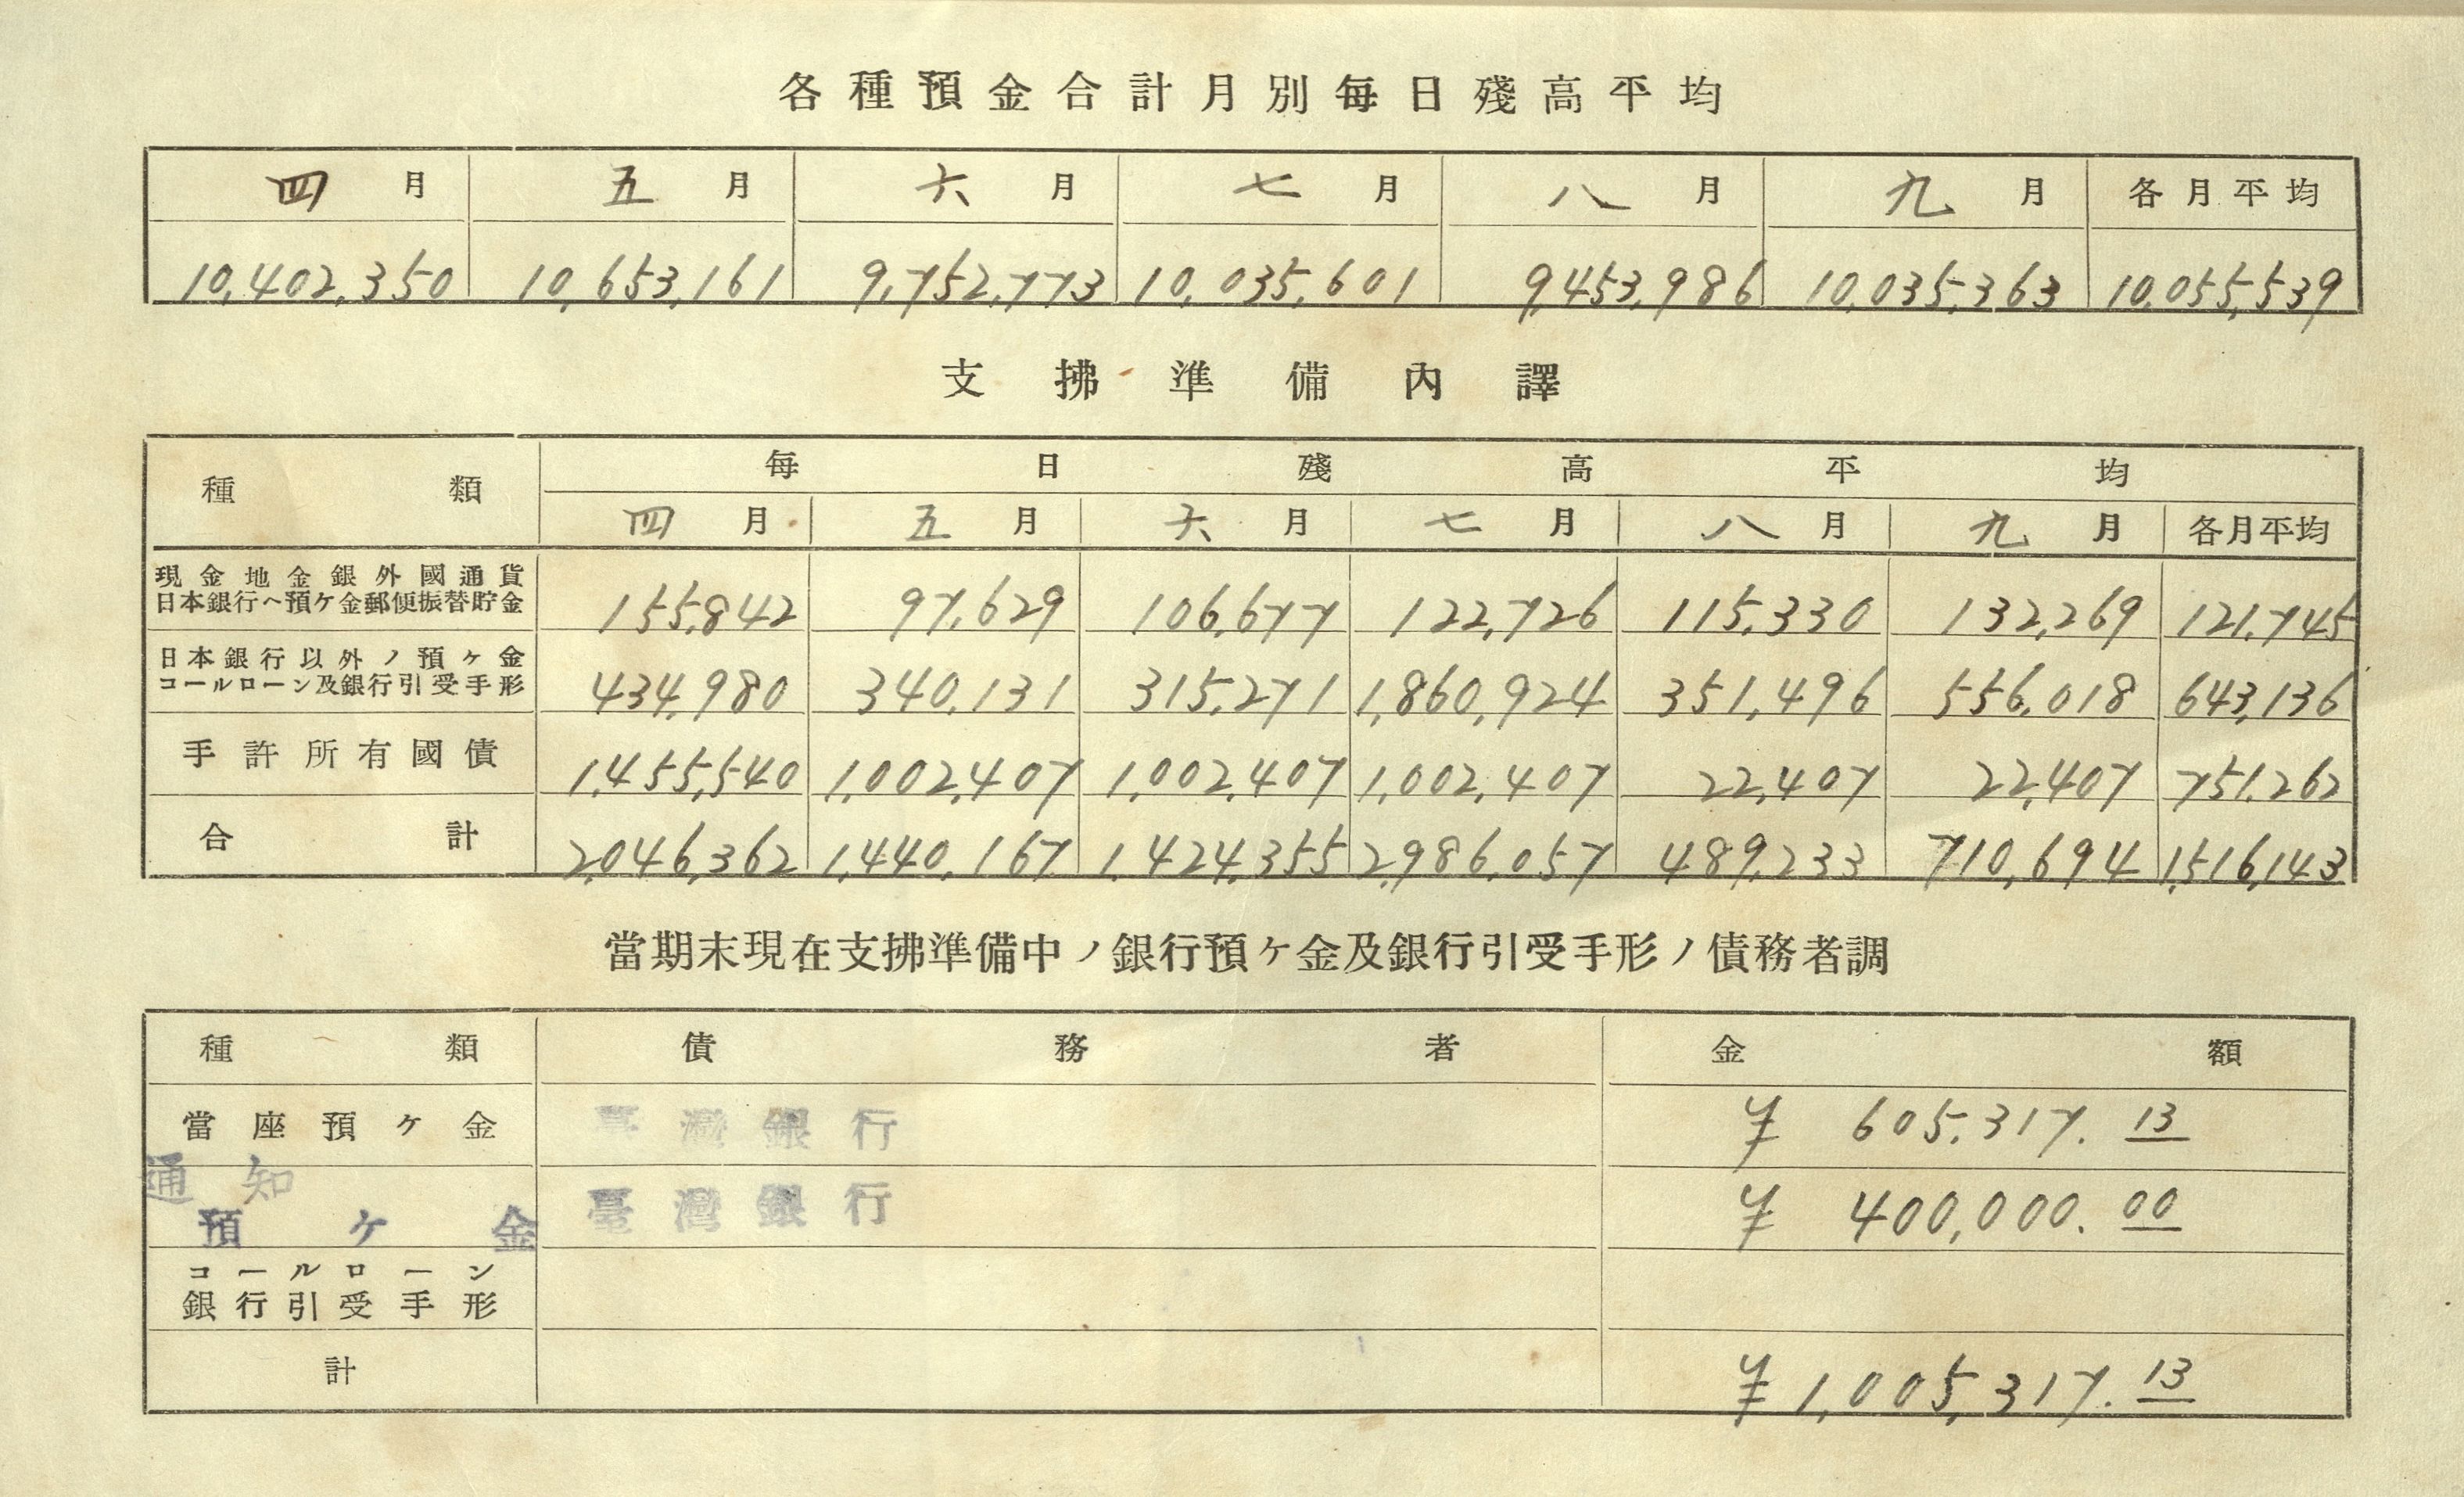 各種預金合計月別每日殘高平均
四月 五月 六月 七月 八月 九月 各月平均
10,402,350 10,653,161 9,752,773 10,035,601 9,453,986 10,035,363 10,055,539
支拂準備內譯
種類 每日殘高平均
四月 五月 六月 七月 八月 九月 各月平均
現金地金銀外國通貨
日本銀行ヘ預ケ金郵便振替貯金 155,842 97,629 106,677 122,726 115,330 132,269 121,745
日本銀行以外ノ預ケ金
コールローン及銀行引受手形 434,980 340,131 315,271 1,860,924 351,496 556,018 643,136
手許所有國債 1,455,540 1,002,407 1,002,407 1,002,407 22,407 22,407 751,262
合計 2,046,362 1,440,167 1,424,355 2,986,057 489,233 710,694 1,516,143
當期末現在支拂準備中ノ銀行預ケ金及銀行引受手形ノ債務者調
種類 債務者 金額
當座預ケ金 臺灣銀行 ¥ 605,317.13
通知
預ケ金 臺灣銀行 ¥ 400,000.00
コールローン
銀行引受手形
計 ¥1,005,317.13